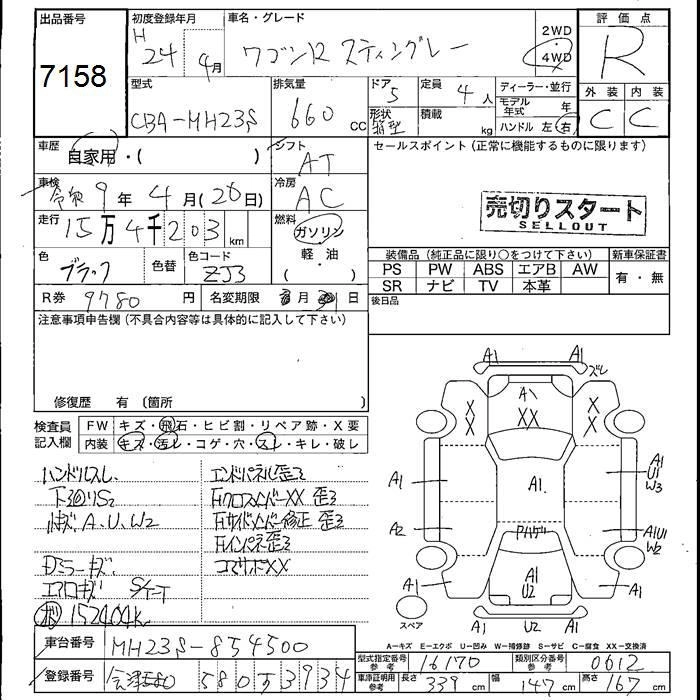 出品番号 初度登録年月 車名・グレード 2WD 4WD 評価点
7158 H 24 4月 ワゴンR スティングレー R
型式 排気量 ドア 定員 ディーラー・並行 外装 内装
CBA-MH23S 660 cc 5 4人 モデル年式 年 C C
形状 箱型 積載 kg ハンドル 左 右
車歴 自家用・( ) シフト AT セールスポイント(正常に機能するものに限ります)
車検 令和 9年 4月(20日) 冷房 AC
走行 15万4千203km 燃料 ガソリン 軽・油
売切りスタート
SELLOUT
色 ブラック 色替 色コード ZJ3
装備品(純正品に限り○をつけて下さい) 新車保証書
PS PW ABS エアB AW 有・無
SR ナビ TV 本革
R券 9780円 名変期限 月 日 後日品
注意事項申告欄(不具合内容等は具体的に記入して下さい)
修復歴 有 〔箇所 〕
検査員記入欄 FW キズ・飛石・ヒビ割・リペア跡・X要
内装 キズ・汚レ・コゲ・穴・スレ・キレ・破レ
ハンドルスレ エンドパネル歪ミ
下廻りS2 FクロスメンバーXX 歪ミ
A、U、W2 Fサイドメンバー修正 歪ミ
Fインパネ歪ミ
Dミラーキズ コアサポXX
エアロキズ
152404K
車台番号 MH23S-854500
登録番号 580 3934
A1 A1 ズレ
A1
XX XX XX
A1 A1 A1 U1 W3
A2 Rハゲ A1U1 W2
A1 A1 U2 A1
U2
スペア
A-キズ E-エクボ U-凹み W-補修跡 S-サビ C-腐食 XX-交換済
型式指定番号 参考 16170 類別区分番号 参考 0612
車庫証明用 参考 長さ 339cm 幅 147cm 高さ 167cm